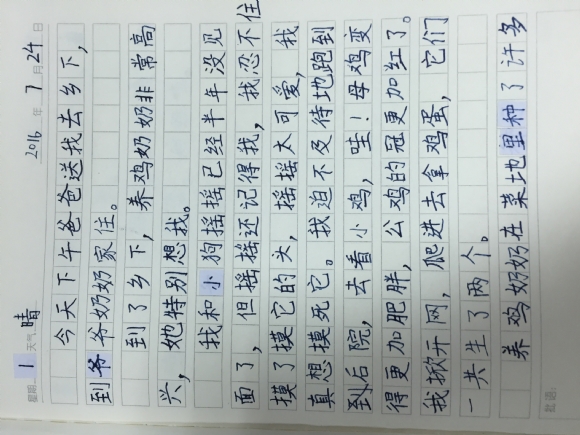 星期 1 天气 晴 2016 年 7 月 24 日
今天下午爸爸送我去乡下，
到爷爷奶奶家住。
到了乡下，养鸡奶奶非常高
兴，她特别想我。
我和小狗摇摇已经半年没见
面了，但摇摇还记得我，我忍不住
摸了摸它的头，摇摇太可爱，我
真想摸死它。我迫不及待地跑到
到后院，去看小鸡，哇！母鸡变
得更加肥胖，公鸡的冠更加红了。
我掀开网，爬进去拿鸡蛋，它们
一共生了两个。
养鸡奶奶在菜地里种了许多
批语：